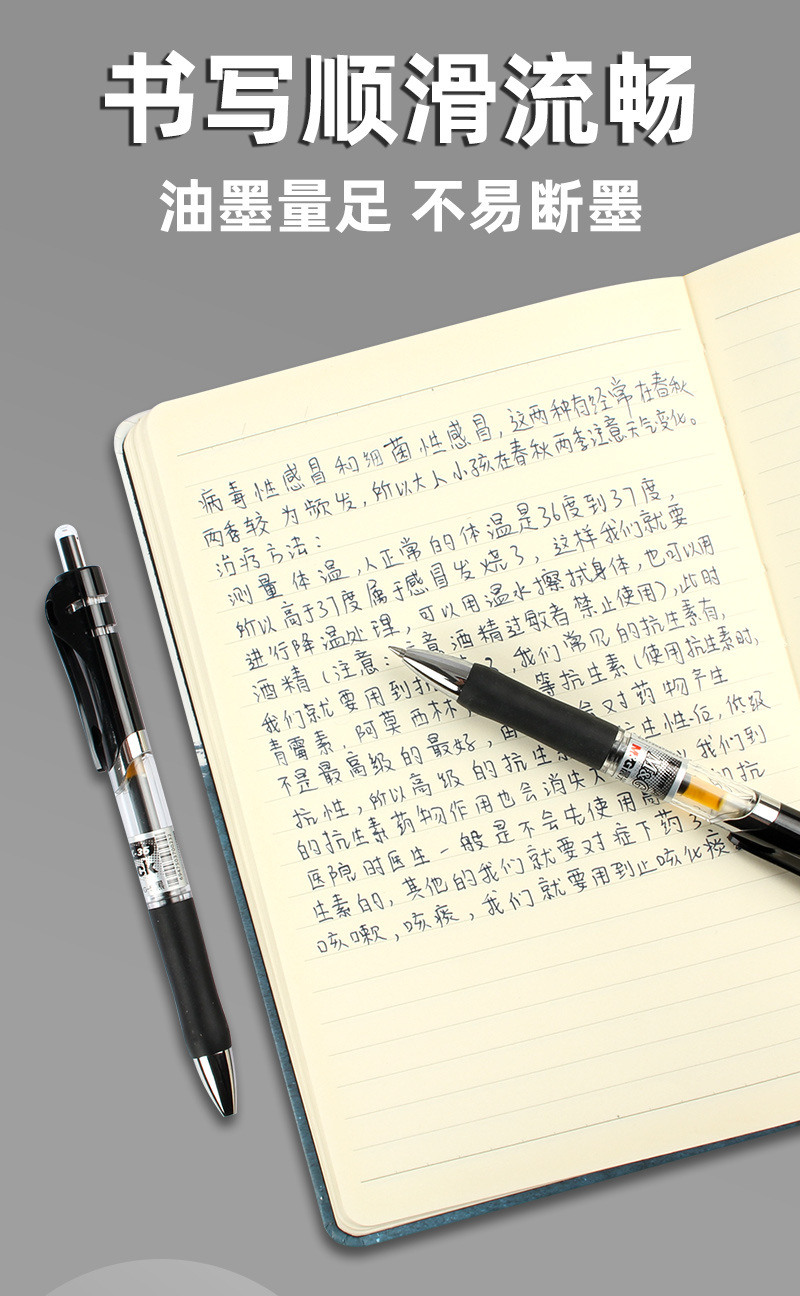 书写顺滑流畅
油墨量足 不易断墨
病毒性感冒和细菌性感冒，这两种有经常在春秋
两季较为频发，所以大人小孩在春秋两季注意天气变化。
治疗方法：
测量体温，人正常的体温是36度到37度，
所以高于37度属于感冒发烧了，这样我们就要
进行降温处理，可以用温水擦拭身体，也可以用
酒精（注意：注意酒精过敏者禁止使用），此时
我们就要用到抗 ，我们常见的抗生素有，
青霉素，阿莫西林， 等抗生素（使用抗生素时，
不是最高级的最好， 对药物产生
抗性，所以高级的抗生 生性后，低级
的抗生素药物作用也会消失 我们到
医院时医生一般是不会先使用高 的抗
生素的，其他的我们就要对症下药
咳嗽，咳痰，我们就要用到止咳化痰
M&G
-35
ck